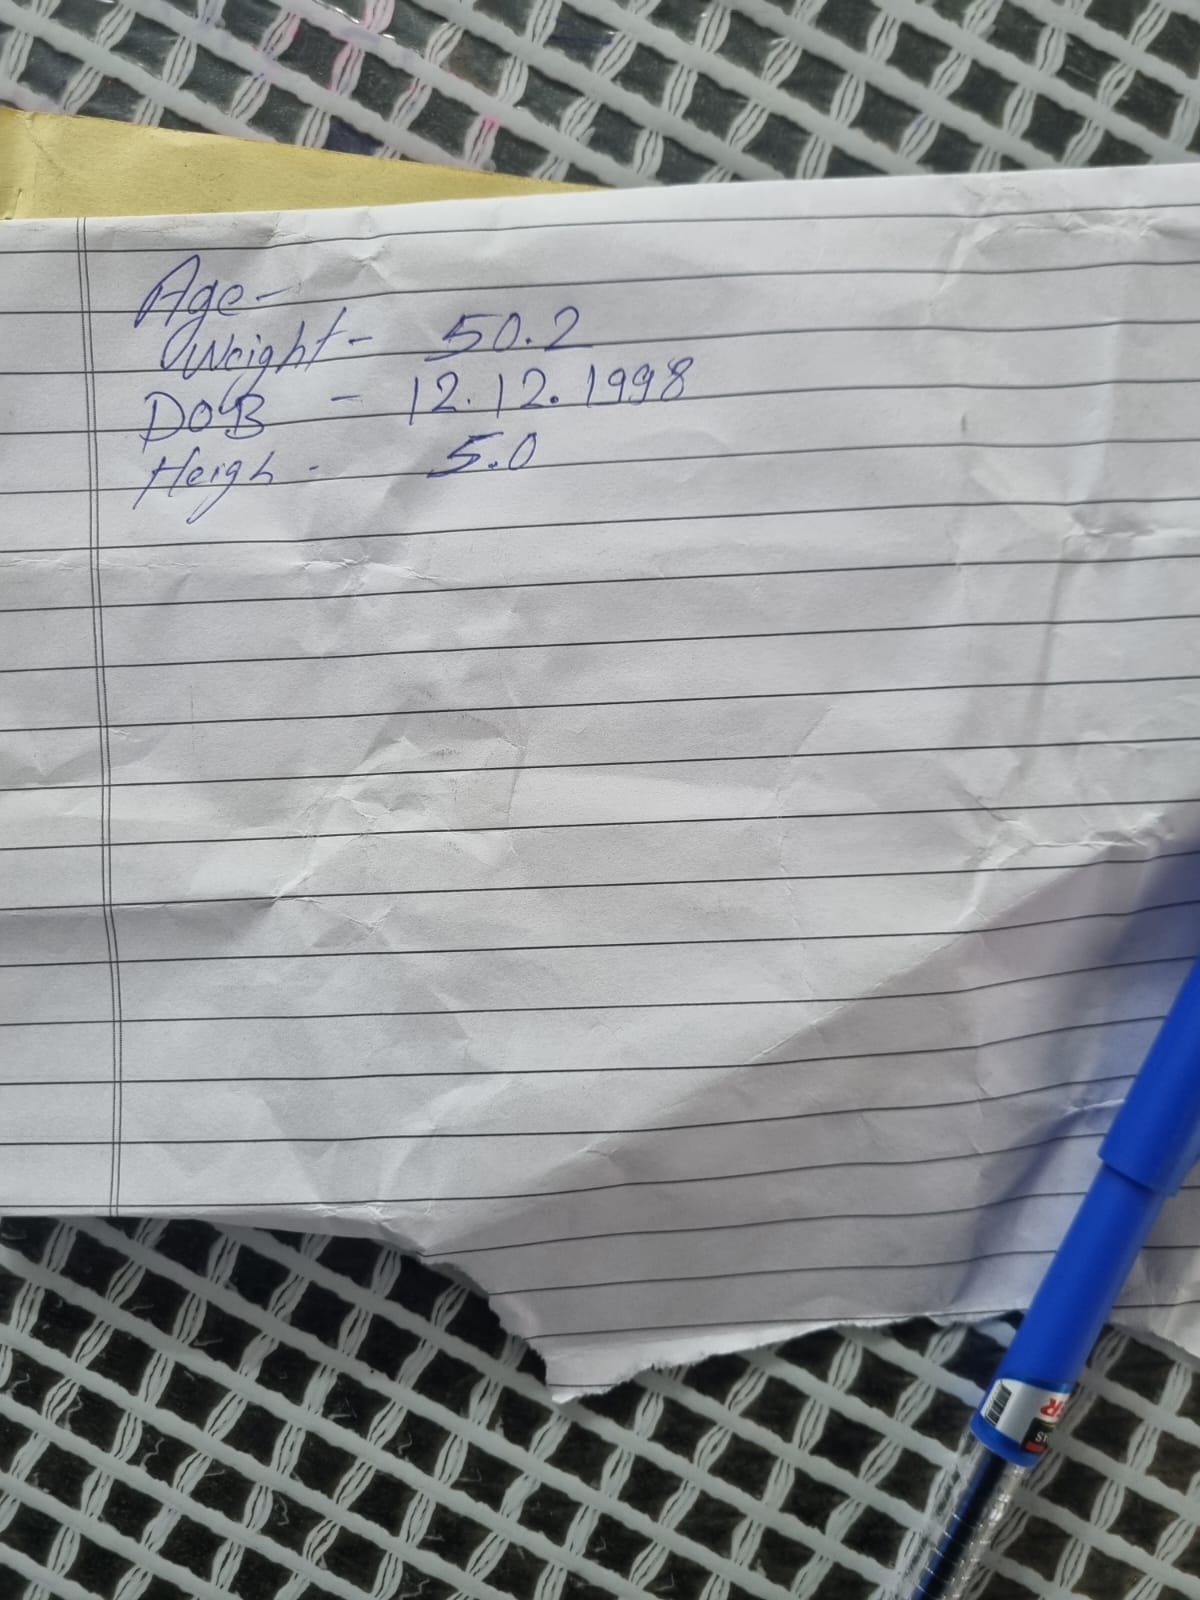 Age-
Weight- 50.2
DOB - 12.12.1998
Heigh - 5.0